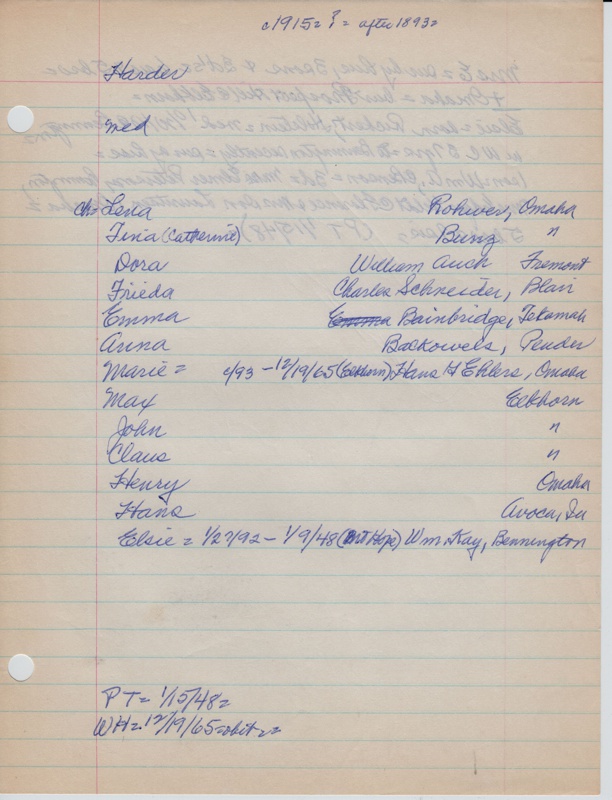 c1915= ?= after 1893=
Harder
med
ch= Lena Rohwer, Omaha
Tina (Catherine) Bunz "
Dora William Auch Fremont
Frieda Charles Schneider, Blair
Emma Emma Bainbridge, Tekamah
Anna Backowels, Pender
Marie = c/93 - 12/19/65 (Elkhorn) Hans H Ehlers, Omaha
Max Elkhorn
John "
Claus "
Henry Omaha
Hans Avoca, Ia
Elsie = 1/27/92 - 1/9/48 (Mt Hope) Wm. Kay, Bennington
PT= 1/15/48=
WH= 12/19/65=obit==